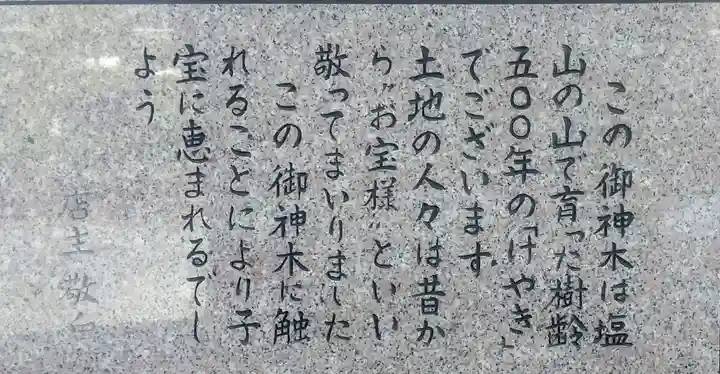 この御神木は塩
山の山で育った樹齢
五〇〇年の「けやき」
でございます
土地の人々は昔か
ら〝お宝様〟といい
敬ってまいりました
この御神木に触
れることにより子
宝に恵まれるでし
ょう
店主敬白